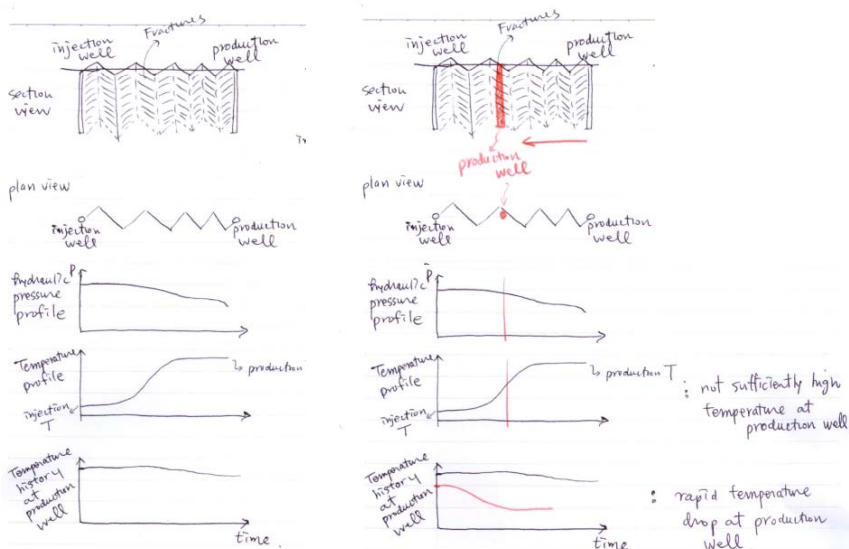 Fractures
injection
well
production
well
section
view
plan view
injection
well
production
well
hydraulic
pressure
profile
P
Temperature
profile
production
injection
T
Temperature
history
at
production
well
time
Fractures
injection
well
production
well
section
view
production
well
plan view
injection
well
production
well
hydraulic
pressure
profile
P
Temperature
profile
production T
: not sufficiently high
temperature at
production well
injection
T
Temperature
history
at
production
well
time
: rapid temperature
drop at production
well